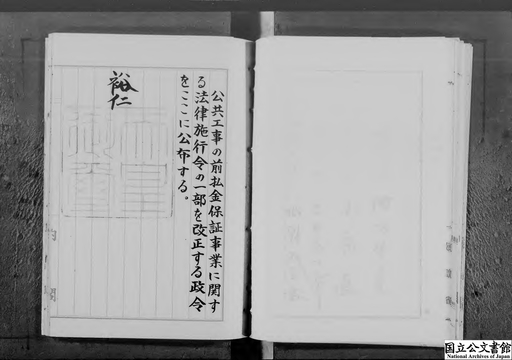 公共工事の前払金保証事業に関す
る法律施行令の一部を改正する政令
をここに公布する。
裕仁
天皇
御璽
国立公文書館
National Archives of Japan